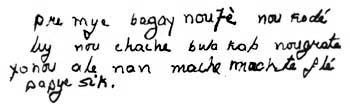 pre mye bagay nou fè nou kode
liy nou chache bwa kap nou grate
yo nou ale nan mache machte flè
papye sik.